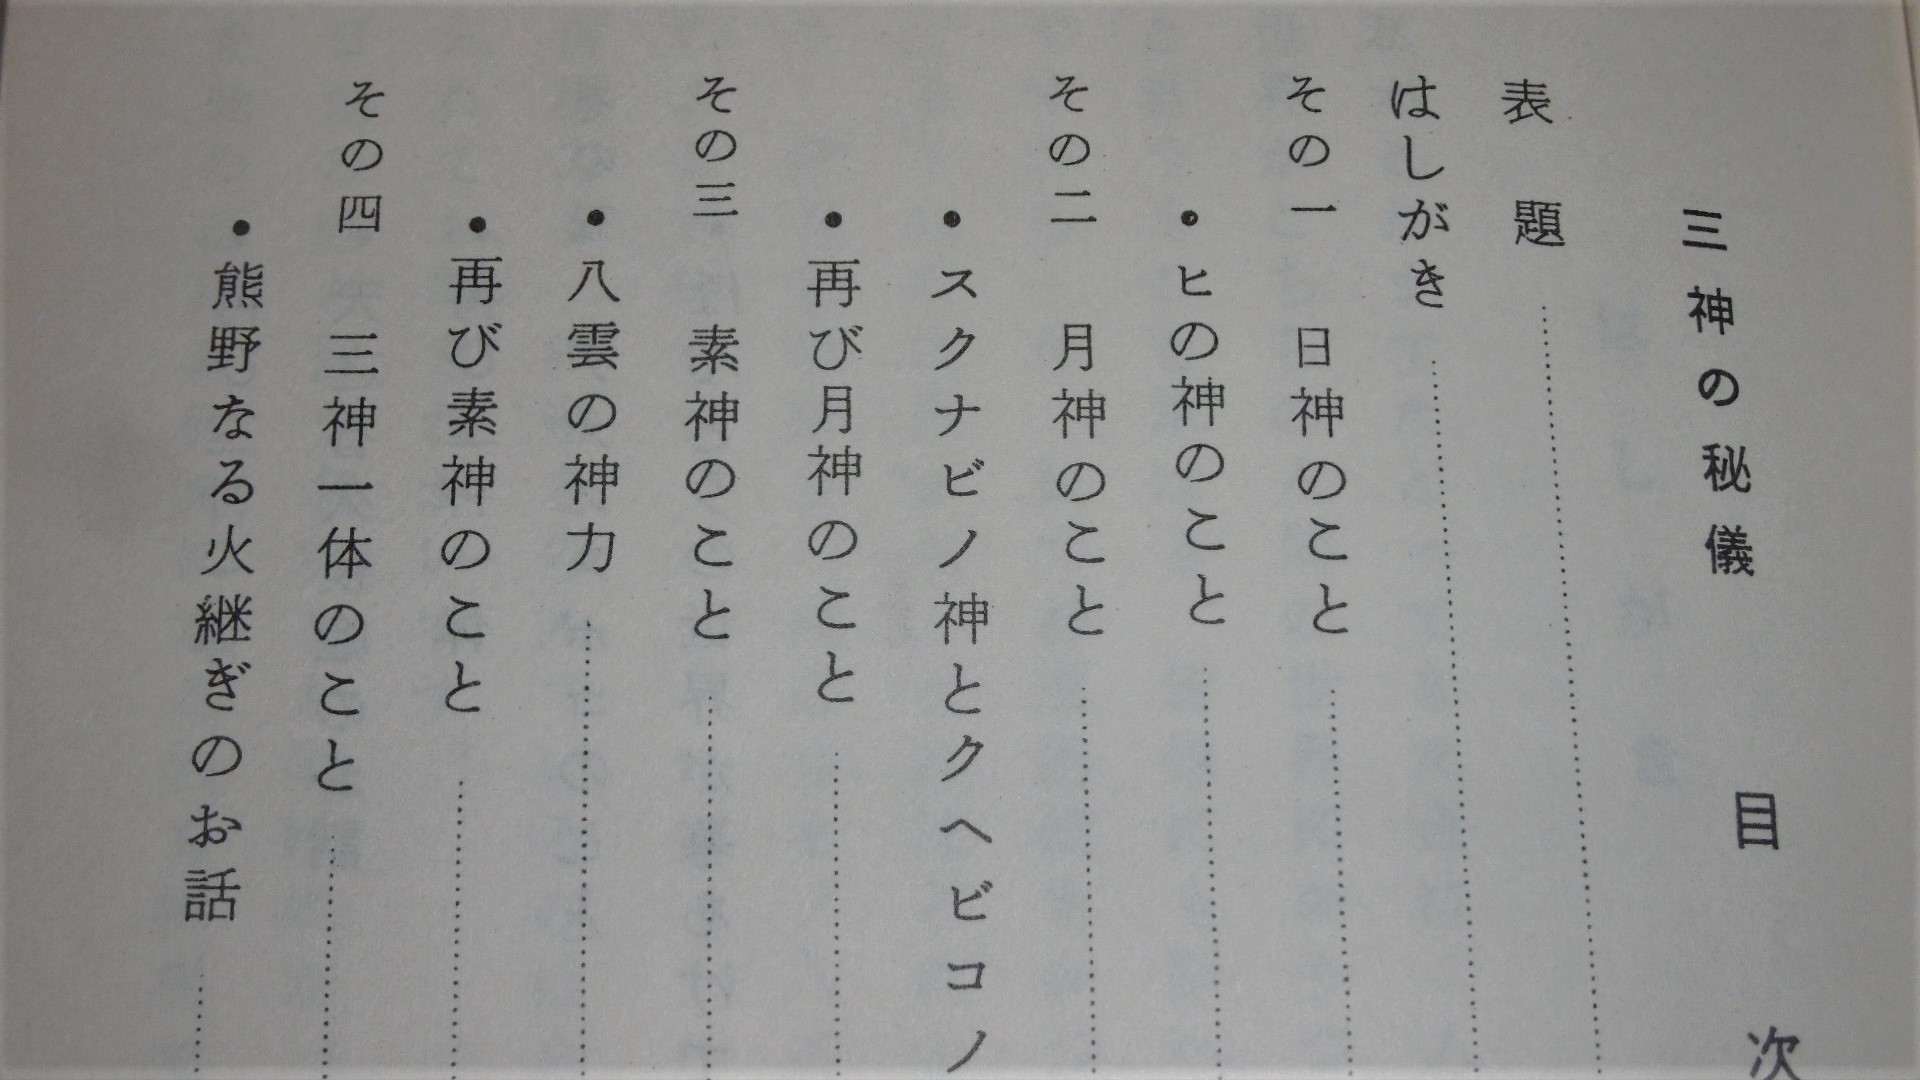 三神の秘儀 目次
表題
はしがき
その一 日神のこと
・ヒの神のこと
その二 月神のこと
・スクナビノ神とクヘビコノ
・再び月神のこと
その三 素神のこと
・八雲の神力
・再び素神のこと
その四 三神一体のこと
・熊野なる火継ぎのお話